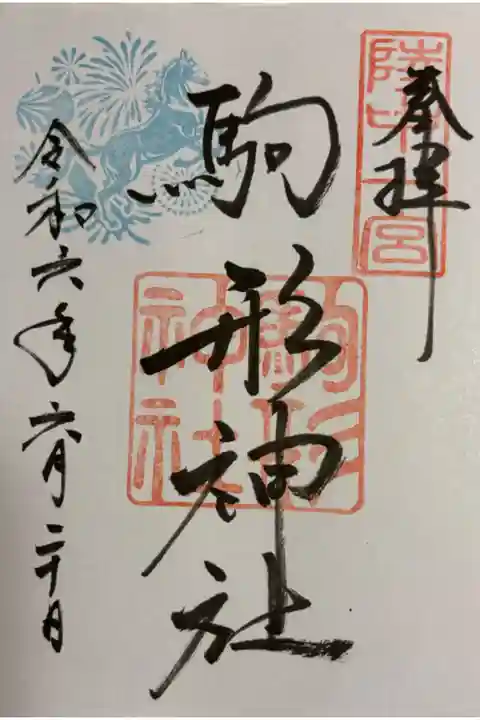 奉拝
陸中一宮
駒形神社
駒形神社
令和六年六月二十日